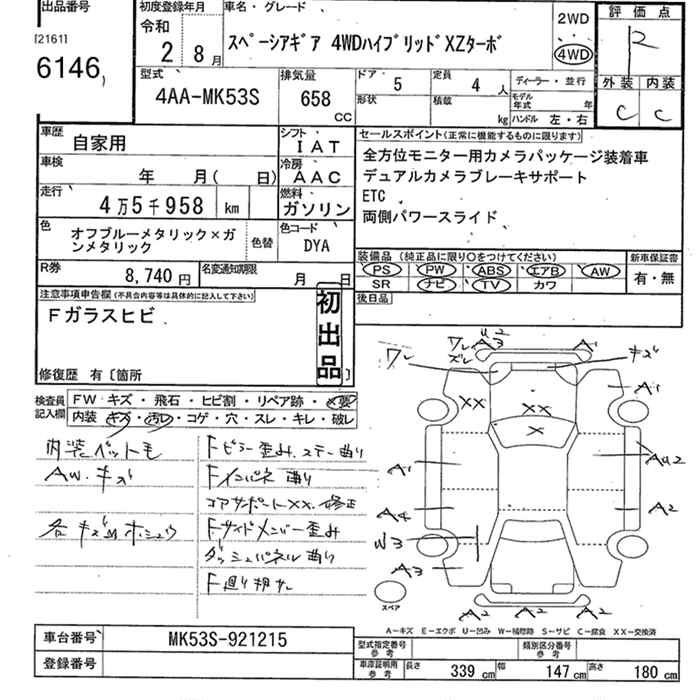 出品番号
[2161]
6146
初度登録年月
令和
2 8月
車名・グレード
スペーシアギア 4WDハイブリッドXZターボ
2WD
4WD
評価点
R
外装 内装
C C
型式
4AA-MK53S
排気量
658
CC
ドア 5
定員 4 人
ディーラー・並行
形状
積載
kg
モデル年式 年
ハンドル 左・右
車歴
自家用
シフト
IAT
車検
年 月( 日)
冷房
AAC
走行
4万5千958 km
燃料
ガソリン
色
オフブルーメタリック×ガ
ンメタリック
色替
色コード
DYA
R券
8,740円
名変通知期限
月 日
セールスポイント(正常に機能するものに限ります)
全方位モニター用カメラパッケージ装着車
デュアルカメラブレーキサポート
ETC
両側パワースライド
装備品 (純正品に限り○をつけてください)
PS PW ABS エアB AW
SR ナビ TV カワ
新車保証書
有・無
後日品
注意事項申告欄(不具合内容等は具体的に記入して下さい)
Fガラスヒビ
初出品
修復歴 有〔箇所 〕
検査員
記入欄
FW キズ・飛石・ヒビ割・リペア跡・×要
内装 キズ・汚レ・コゲ・穴・スレ・キレ・破レ
内装ペット毛
AW.キズ
各キズ凹ホシュウ
Fピラー歪み.ステー曲り
Fインパネ曲り
コアサポートXX.修正
Fサイドメンバー歪み
ダッシュパネル曲り
F廻り押サレ
ワレ
ワレA3
ズレ
U2
A1
キズ
A1
XX
XX
X
A1
AU2
A4
A2
W3
A3
A2
A2
A2
スペア
A-キズ E-エクボ U-凹み W-補修跡 S-サビ C-腐食 XX-交換済
車台番号
MK53S-921215
登録番号
型式指定番号
参考
類別区分番号
参考
車庫証明用
参考
長さ 339 cm 幅 147 cm 高さ 180 cm